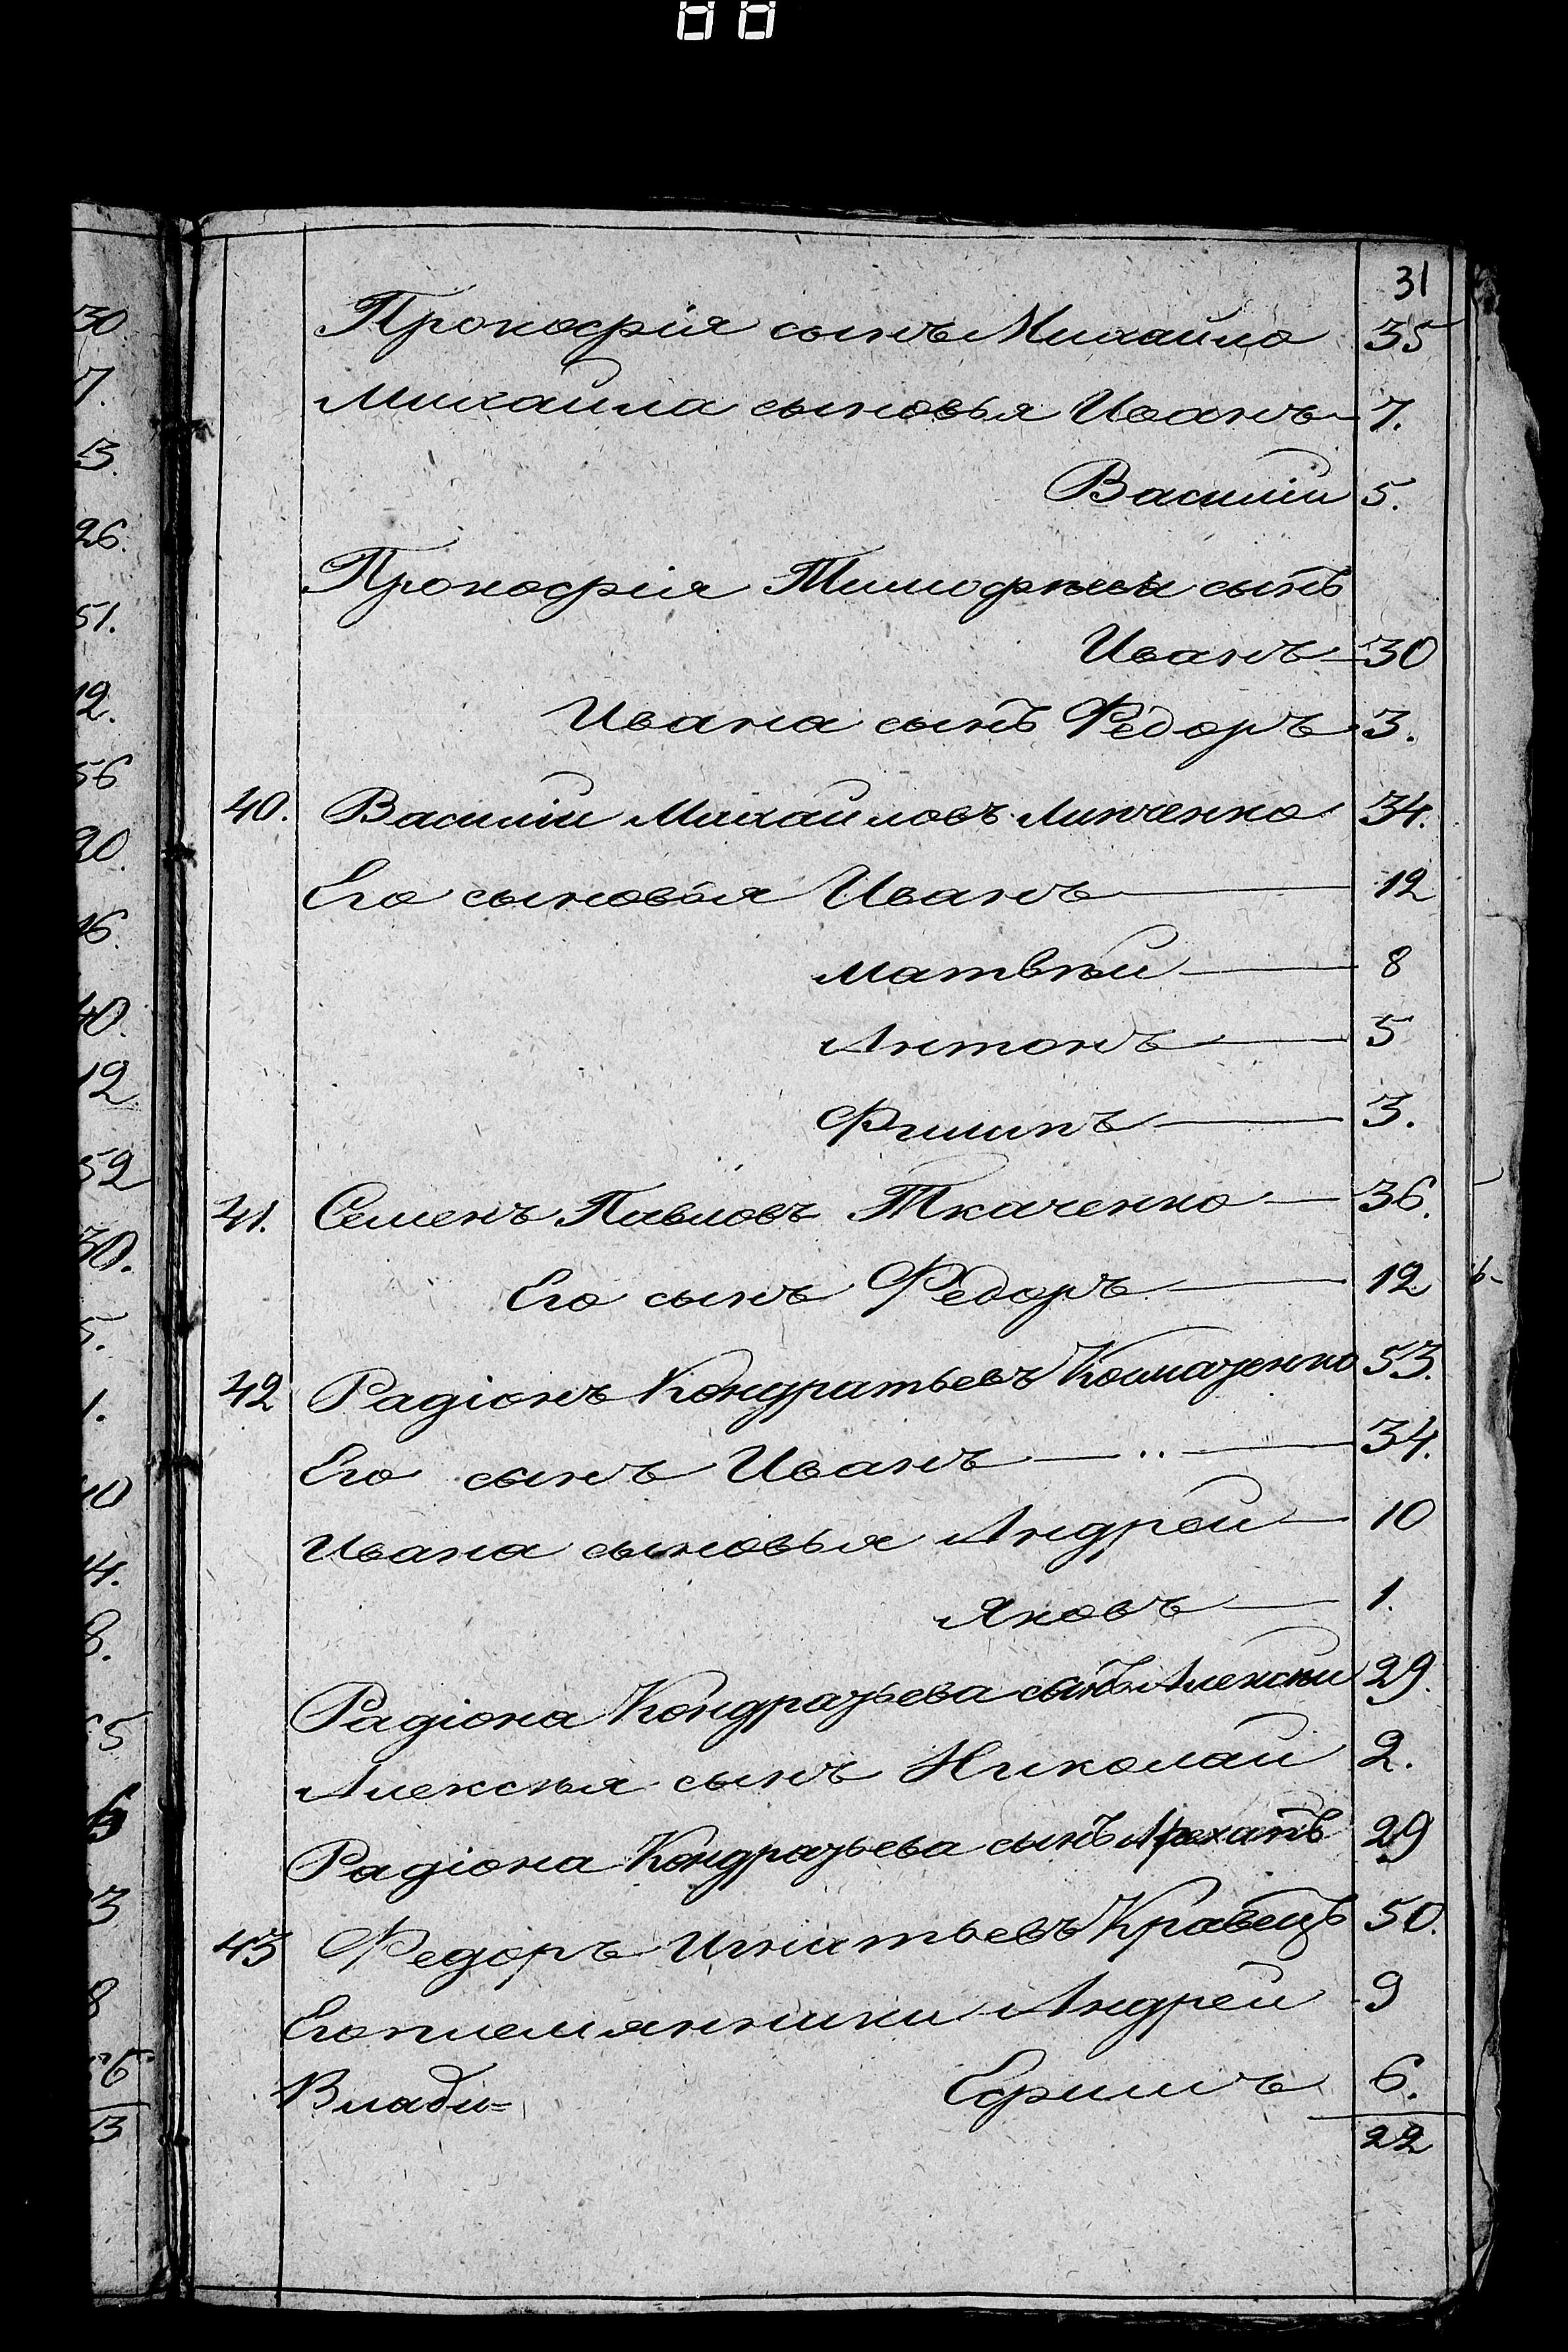 31
Прокофія сынъ Михайло 35
Михайла сыновья Иванъ 7.
Василій 5.
Прокофія Тимофѣева сынъ
Иванъ 30
Ивана сынъ Федоръ 3.
40. Василій Михайловъ Липченко 34.
Его сыновья Иванъ 12
Матвѣй 8
Антонъ 5
Филипъ 3.
41. Семенъ Павловъ Ткаченко 36.
Его сынъ Федоръ 12
42 Радіонъ Кондратьевъ 53.
Его сынъ Иванъ 34.
Ивана сыновья Андрей 10
Яковъ 1.
Радіона Кондратьева сынъ Алексѣй 29.
Алексѣя сынъ Николай 2.
Радіона Кондратьева сынъ 29
43 Федоръ Игнатьевъ Кравецъ 50.
Его племянники Андрей 9
Ефимъ 6.
Влади=
22
30.
7.
3.
26.
51.
12.
56
20.
16.
40.
12
52
30.
5.
1.
40
14.
8.